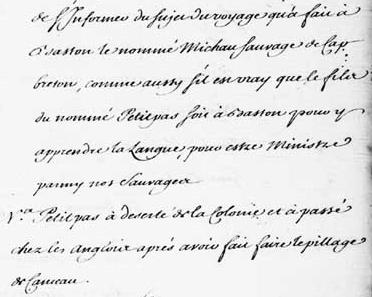 de s'Informer du sujet du voyage qu'a fait à
Baston le nommé Michau sauvage de Cap
breton, comme aussy s'il est vray que le fils
du nommé Petitpas soit à baston pour y
apprendre la Langue, pour estre Ministre
parmy nos Sauvages
Petitpas à deserté de la Colonie et à passé
chez les Anglois aprés avoir fait faire le pillage
de Canceau.